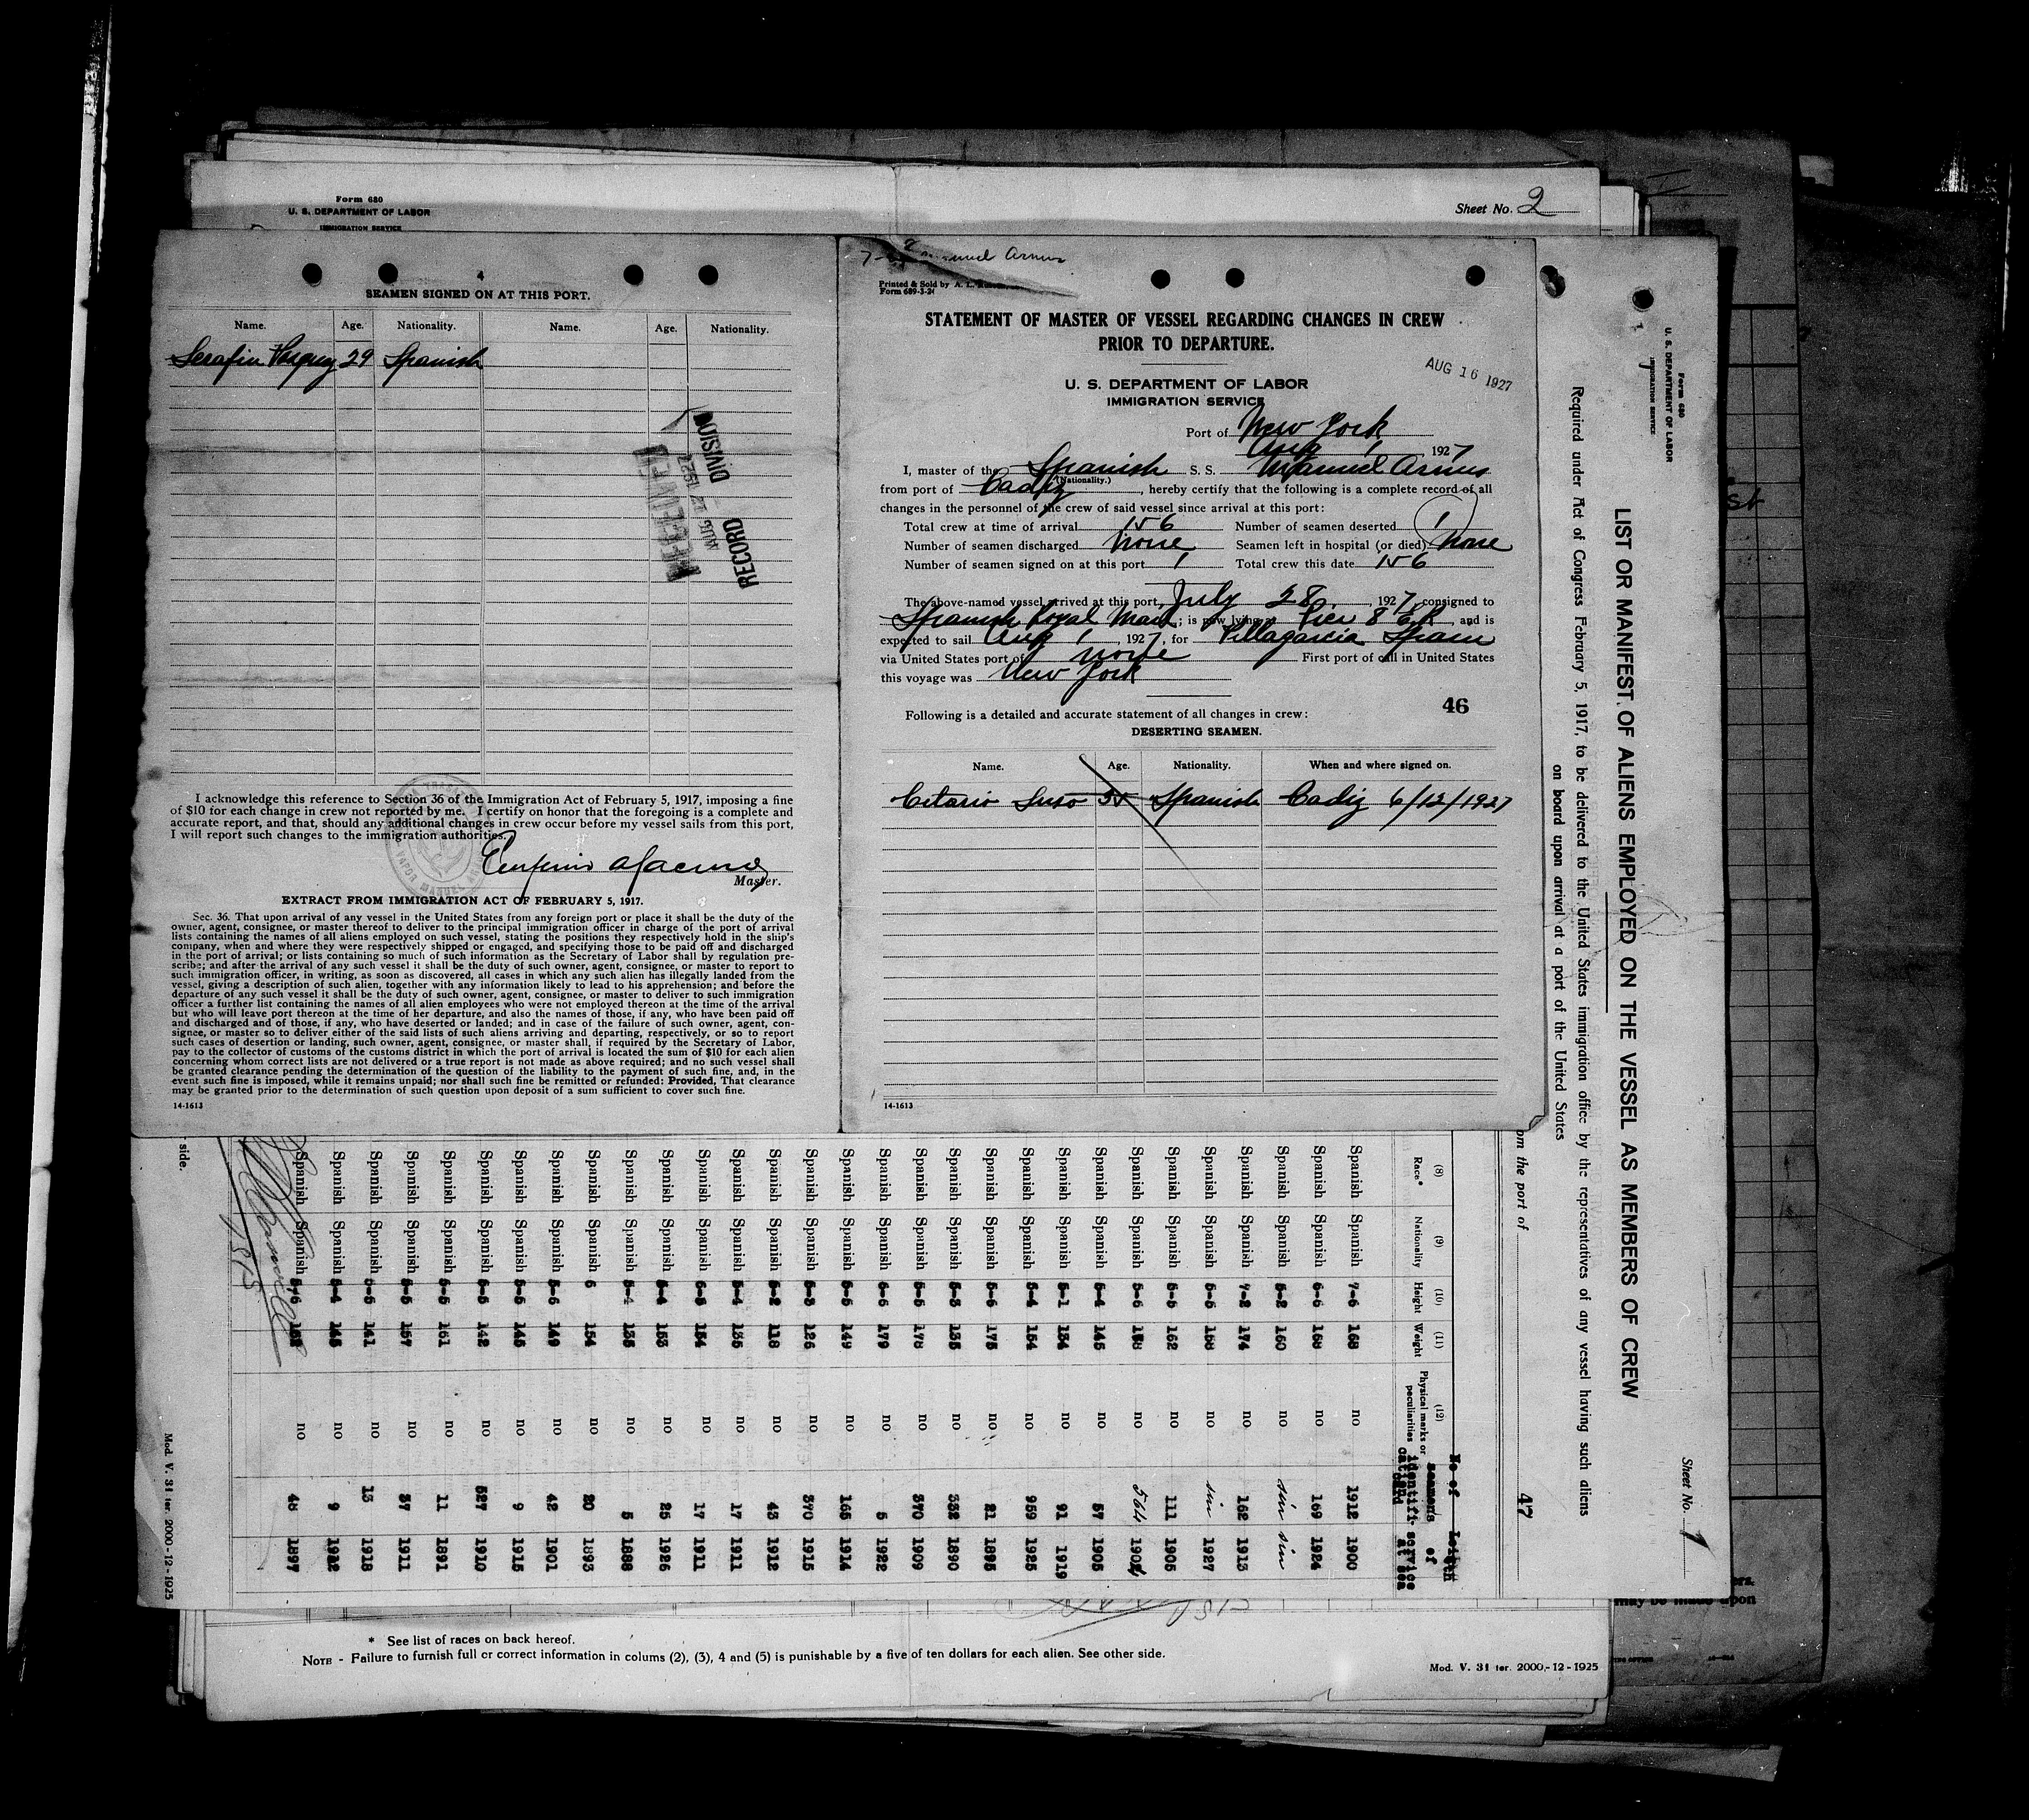 Form 680
U. S. DEPARTMENT OF LABOR
IMMIGRATION SERVICE
Sheet No. 2
4
SEAMEN SIGNED ON AT THIS PORT.
Name. Age. Nationality. Name. Age. Nationality.
Serafin Vasquez 29 Spanish
RECEIVED
AUG 27 1927
RECORD DIVISION
I acknowledge this reference to Section 36 of the Immigration Act of February 5, 1917, imposing a fine
of $10 for each change in crew not reported by me. I certify on honor that the foregoing is a complete and
accurate report, and that, should any additional changes in crew occur before my vessel sails from this port,
I will report such changes to the immigration authorities.
Master.
EXTRACT FROM IMMIGRATION ACT OF FEBRUARY 5, 1917.
Sec. 36. That upon arrival of any vessel in the United States from any foreign port or place it shall be the duty of the
owner, agent, consignee, or master thereof to deliver to the principal immigration officer in charge of the port of arrival
lists containing the names of all aliens employed on such vessel, stating the positions they respectively hold in the ship's
company, when and where they were respectively shipped or engaged, and specifying those to be paid off and discharged
in the port of arrival; or lists containing so much of such information as the Secretary of Labor shall by regulation pre-
scribe; and after the arrival of any such vessel it shall be the duty of such owner, agent, consignee, or master to report to
such immigration officer, in writing, as soon as discovered, all cases in which any such alien has illegally landed from the
vessel, giving a description of such alien, together with any information likely to lead to his apprehension; and before the
departure of any such vessel it shall be the duty of such owner, agent, consignee, or master to deliver to such immigration
officer a further list containing the names of all alien employees who were not employed thereon at the time of the arrival
but who will leave port thereon at the time of her departure, and also the names of those, if any, who have been paid off
and discharged and of those, if any, who have deserted or landed; and in case of the failure of such owner, agent, con-
signee, or master so to deliver either of the said lists of such aliens arriving and departing, respectively, or so to report
such cases of desertion or landing, such owner, agent, consignee, or master shall, if required by the Secretary of Labor,
pay to the collector of customs of the customs district in which the port of arrival is located the sum of $10 for each alien
concerning whom correct lists are not delivered or a true report is not made as above required; and no such vessel shall
be granted clearance pending the determination of the question of the liability to the payment of such fine, and, in the
event such fine is imposed, while it remains unpaid; nor shall such fine be remitted or refunded: Provided, That clearance
may be granted prior to the determination of such question upon deposit of a sum sufficient to cover such fine.
14-1613
Manuel Arnus
Printed & Sold by A. L.
Form 689-3-24
STATEMENT OF MASTER OF VESSEL REGARDING CHANGES IN CREW
PRIOR TO DEPARTURE.
AUG 16 1927
U. S. DEPARTMENT OF LABOR
IMMIGRATION SERVICE
Port of New York
Aug 1 1927
I, master of the Spanish S. S. Manuel Arnus
(Nationality.)
from port of Cadiz, hereby certify that the following is a complete record of all
changes in the personnel of the crew of said vessel since arrival at this port:
Total crew at time of arrival 156 Number of seamen deserted 1
Number of seamen discharged None Seamen left in hospital (or died) None
Number of seamen signed on at this port 1 Total crew this date 156
The above-named vessel arrived at this port, July 28, 1927, consigned to
Spanish Royal Mail; is now lying at Pier 8 E.R., and is
expected to sail Aug 1, 1927, for Villagarcia Spain
via United States port of None First port of call in United States
this voyage was New York
46
Following is a detailed and accurate statement of all changes in crew:
DESERTING SEAMEN.
Name. Age. Nationality. When and where signed on.
Suso Spanish Cadiz 6/12/1927
14-1613
Form 680
U. S. DEPARTMENT OF LABOR
IMMIGRATION SERVICE
LIST OR MANIFEST OF ALIENS EMPLOYED ON THE VESSEL AS MEMBERS OF CREW
Required under Act of Congress February 5, 1917, to be delivered to the United States immigration office by the representatives of any vessel having such aliens
on board upon arrival at a port of the United States
Sheet No. 1
om the port of
47
(8) (9) (10) (11) (12)
Race* Nationality Height Weight Physical marks or peculiarities No of seamen's identification card Length of service at sea
Spanish Spanish 7-6 168 no 1912 1900
Spanish Spanish 6-6 168 no 169 1924
Spanish Spanish 5-2 160 no sin sin
Spanish Spanish 7-2 174 no 162 1913
Spanish Spanish 5-6 158 no sin 1927
Spanish Spanish 5-5 162 no 111 1905
Spanish Spanish 5-6 no 564 1904
Spanish Spanish 5-4 145 no 57 1905
Spanish Spanish 5-1 134 no 91 1919
Spanish Spanish 5-4 154 no 959 1925
Spanish Spanish 5-6 175 no 21 1895
Spanish Spanish 5-3 135 no 332 1890
Spanish Spanish 5-5 178 no 370 1909
Spanish Spanish 6-6 179 no 5 1922
Spanish Spanish 5-5 149 no 165 1914
Spanish Spanish 5-3 126 no 370 1915
Spanish Spanish 5-2 118 no 43 1912
Spanish Spanish 5-4 135 no 17 1911
Spanish Spanish 6-5 154 no 17 1911
Spanish Spanish 5-4 153 no 25 1926
Spanish Spanish 5-4 135 no 5 1888
Spanish Spanish 6 154 no 20 1893
Spanish Spanish 5-6 149 no 42 1901
Spanish Spanish 5-5 145 no 9 1915
Spanish Spanish 5-5 142 no 527 1910
Spanish Spanish 5-5 161 no 11 1891
Spanish Spanish 5-5 157 no 37 1911
Spanish Spanish 5-5 141 no 13 1918
Spanish Spanish 5-4 145 no 9 1922
Spanish Spanish 5-6 no 48 1897
side.
Mod. V. 31 ter. 2000-12-1925
* See list of races on back hereof.
NOTE - Failure to furnish full or correct information in colums (2), (3), 4 and (5) is punishable by a five of ten dollars for each alien. See other side.
Mod. V. 31 ter. 2000,-12-1925
may be made upon